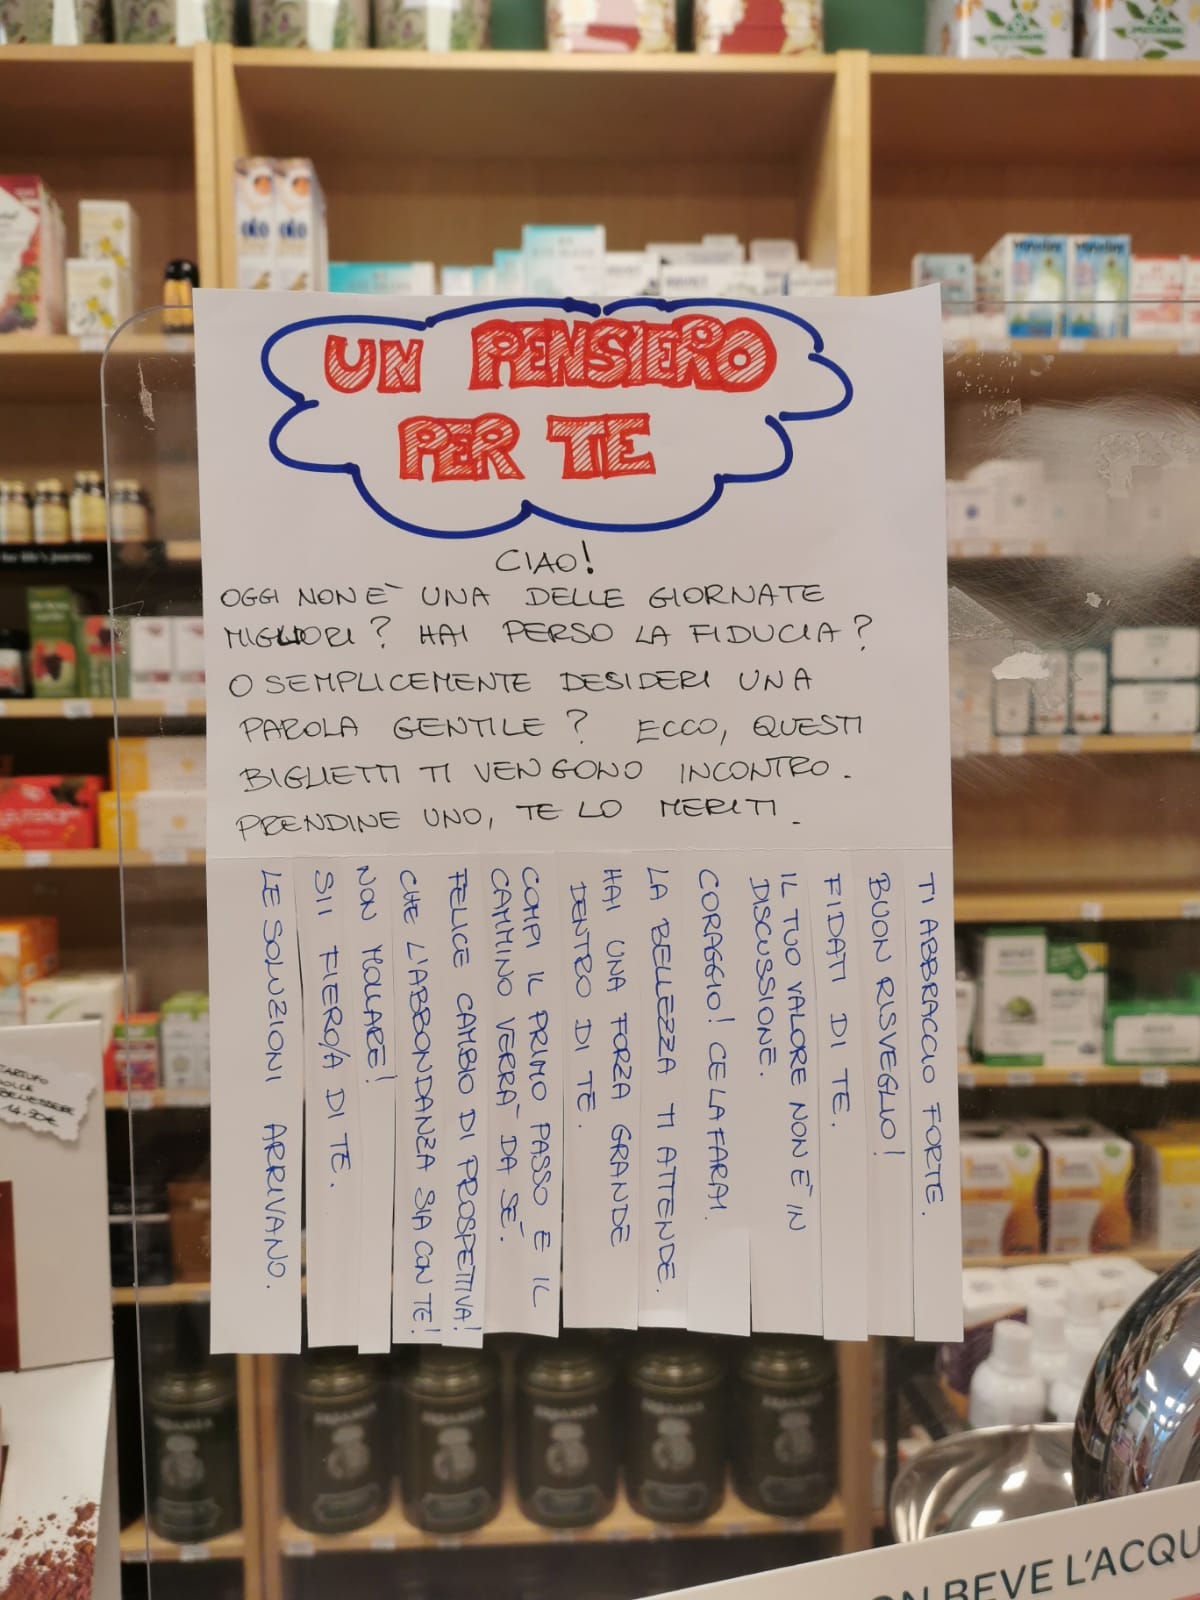 UN PENSIERO
PER TE
CIAO!
OGGI NON È UNA DELLE GIORNATE
MIGLIORI? HAI PERSO LA FIDUCIA?
O SEMPLICEMENTE DESIDERI UNA
PAROLA GENTILE? ECCO, QUESTI
BIGLIETTI TI VENGONO INCONTRO.
PRENDINE UNO, TE LO MERITI.
LE SOLUZIONI ARRIVANO.
SII FIERO/A DI TE.
NON MOLLARE!
CHE L'ABBONDANZA SIA CON TE!
FELICE CAMBIO DI PROSPETTIVA!
COMPI IL PRIMO PASSO E IL
CAMMINO VERRÀ DA SÉ.
HAI UNA FORZA GRANDE
DENTRO DI TE.
LA BELLEZZA TI ATTENDE.
CORAGGIO! CE LA FARAI.
IL TUO VALORE NON È IN
DISCUSSIONE.
FIDATI DI TE.
BUON RISVEGLIO!
TI ABBRACCIO FORTE.
TARTUFO
DOLCE
BENESSERE
14.90€
BEVE L'ACQU